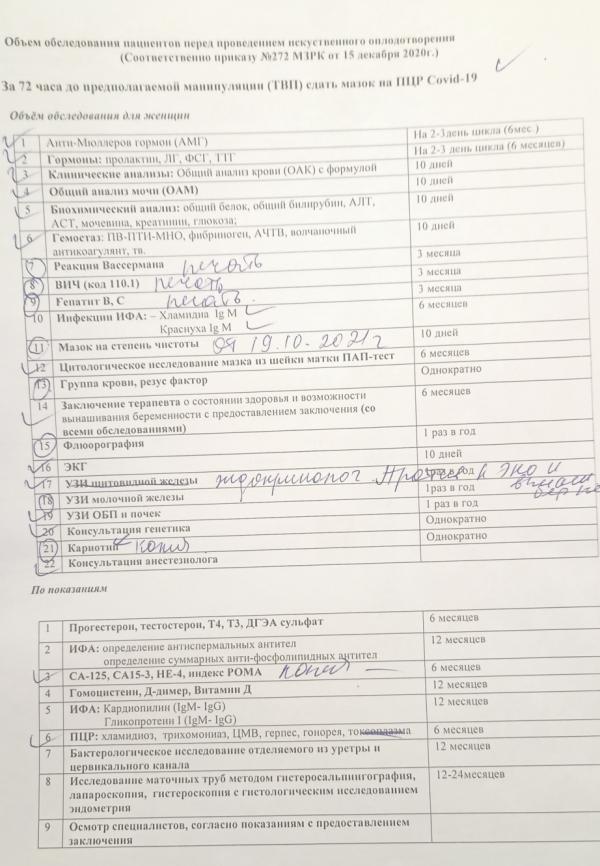 Объем обследования пациентов перед проведением искуственного оплодотворения
(Соответственно приказу №272 МЗРК от 15 декабря 2020г.)
За 72 часа до предполагаемой манипуляции (ТВП) сдать мазок на ПЦР Covid-19
Объём обследования для женщин
1 Анти-Мюллеров гормон (АМГ) На 2-3день цикла (6мес.)
2 Гормоны: пролактин, ЛГ, ФСГ, ТТГ На 2-3 день цикла (6 месяцев)
3 Клинические анализы: Общий анализ крови (ОАК) с формулой 10 дней
4 Общий анализ мочи (ОАМ) 10 дней
5 Биохимический анализ: общий белок, общий билирубин, АЛТ, 10 дней
АСТ, мочевина, креатинин, глюкоза;
6 Гемостаз: ПВ-ПТИ-МНО, фибриноген, АЧТВ, волчаночный 10 дней
антикоагулянт, тв.
7 Реакция Вассермана печать 3 месяца
8 ВИЧ (код 110.1) печать 3 месяца
9 Гепатит В, С печать. 3 месяца
10 Инфекции ИФА: – Хламидиа Ig M 6 месяцев
Краснуха Ig M
11 Мазок на степень чистоты от 19.10.2021г 10 дней
12 Цитологическое исследование мазка из шейки матки ПАП-тест 6 месяцев
13 Группа крови, резус фактор Однократно
14 Заключение терапевта о состоянии здоровья и возможности 6 месяцев
вынашивания беременности с предоставлением заключения (со
всеми обследованиями)
15 Флюорография 1 раз в год
16 ЭКГ 10 дней
17 УЗИ щитовидной железы эндокринолог Против к ЭКО и 1раз в год
18 УЗИ молочной железы 1раз в год
19 УЗИ ОБП и почек 1 раз в год
20 Консультация генетика Однократно
21 Кариотип копия Однократно
22 Консультация анестезиолога
По показаниям
1 Прогестерон, тестостерон, Т4, Т3, ДГЭА сульфат 6 месяцев
2 ИФА: определение антиспермальных антител 12 месяцев
определение суммарных анти-фосфолипидных антител
3 СА-125, СА15-3, НЕ-4, индекс РОМА копия 6 месяцев
4 Гомоцистеин, Д-димер, Витамин Д 12 месяцев
5 ИФА: Кардиопилин (IgM- IgG) 12 месяцев
Гликопротеин I (IgM- IgG)
6 ПЦР: хламидиоз, трихомониаз, ЦМВ, герпес, гонорея, токсоплазма 6 месяцев
7 Бактерологическое исследование отделяемого из уретры и 12 месяцев
цервикального канала
8 Исследование маточных труб методом гистеросальпингография, 12-24месяцев
лапароскопия, гистероскопия с гистологическим исследованием
эндометрия
9 Осмотр специалистов, согласно показаниям с предоставлением
заключения